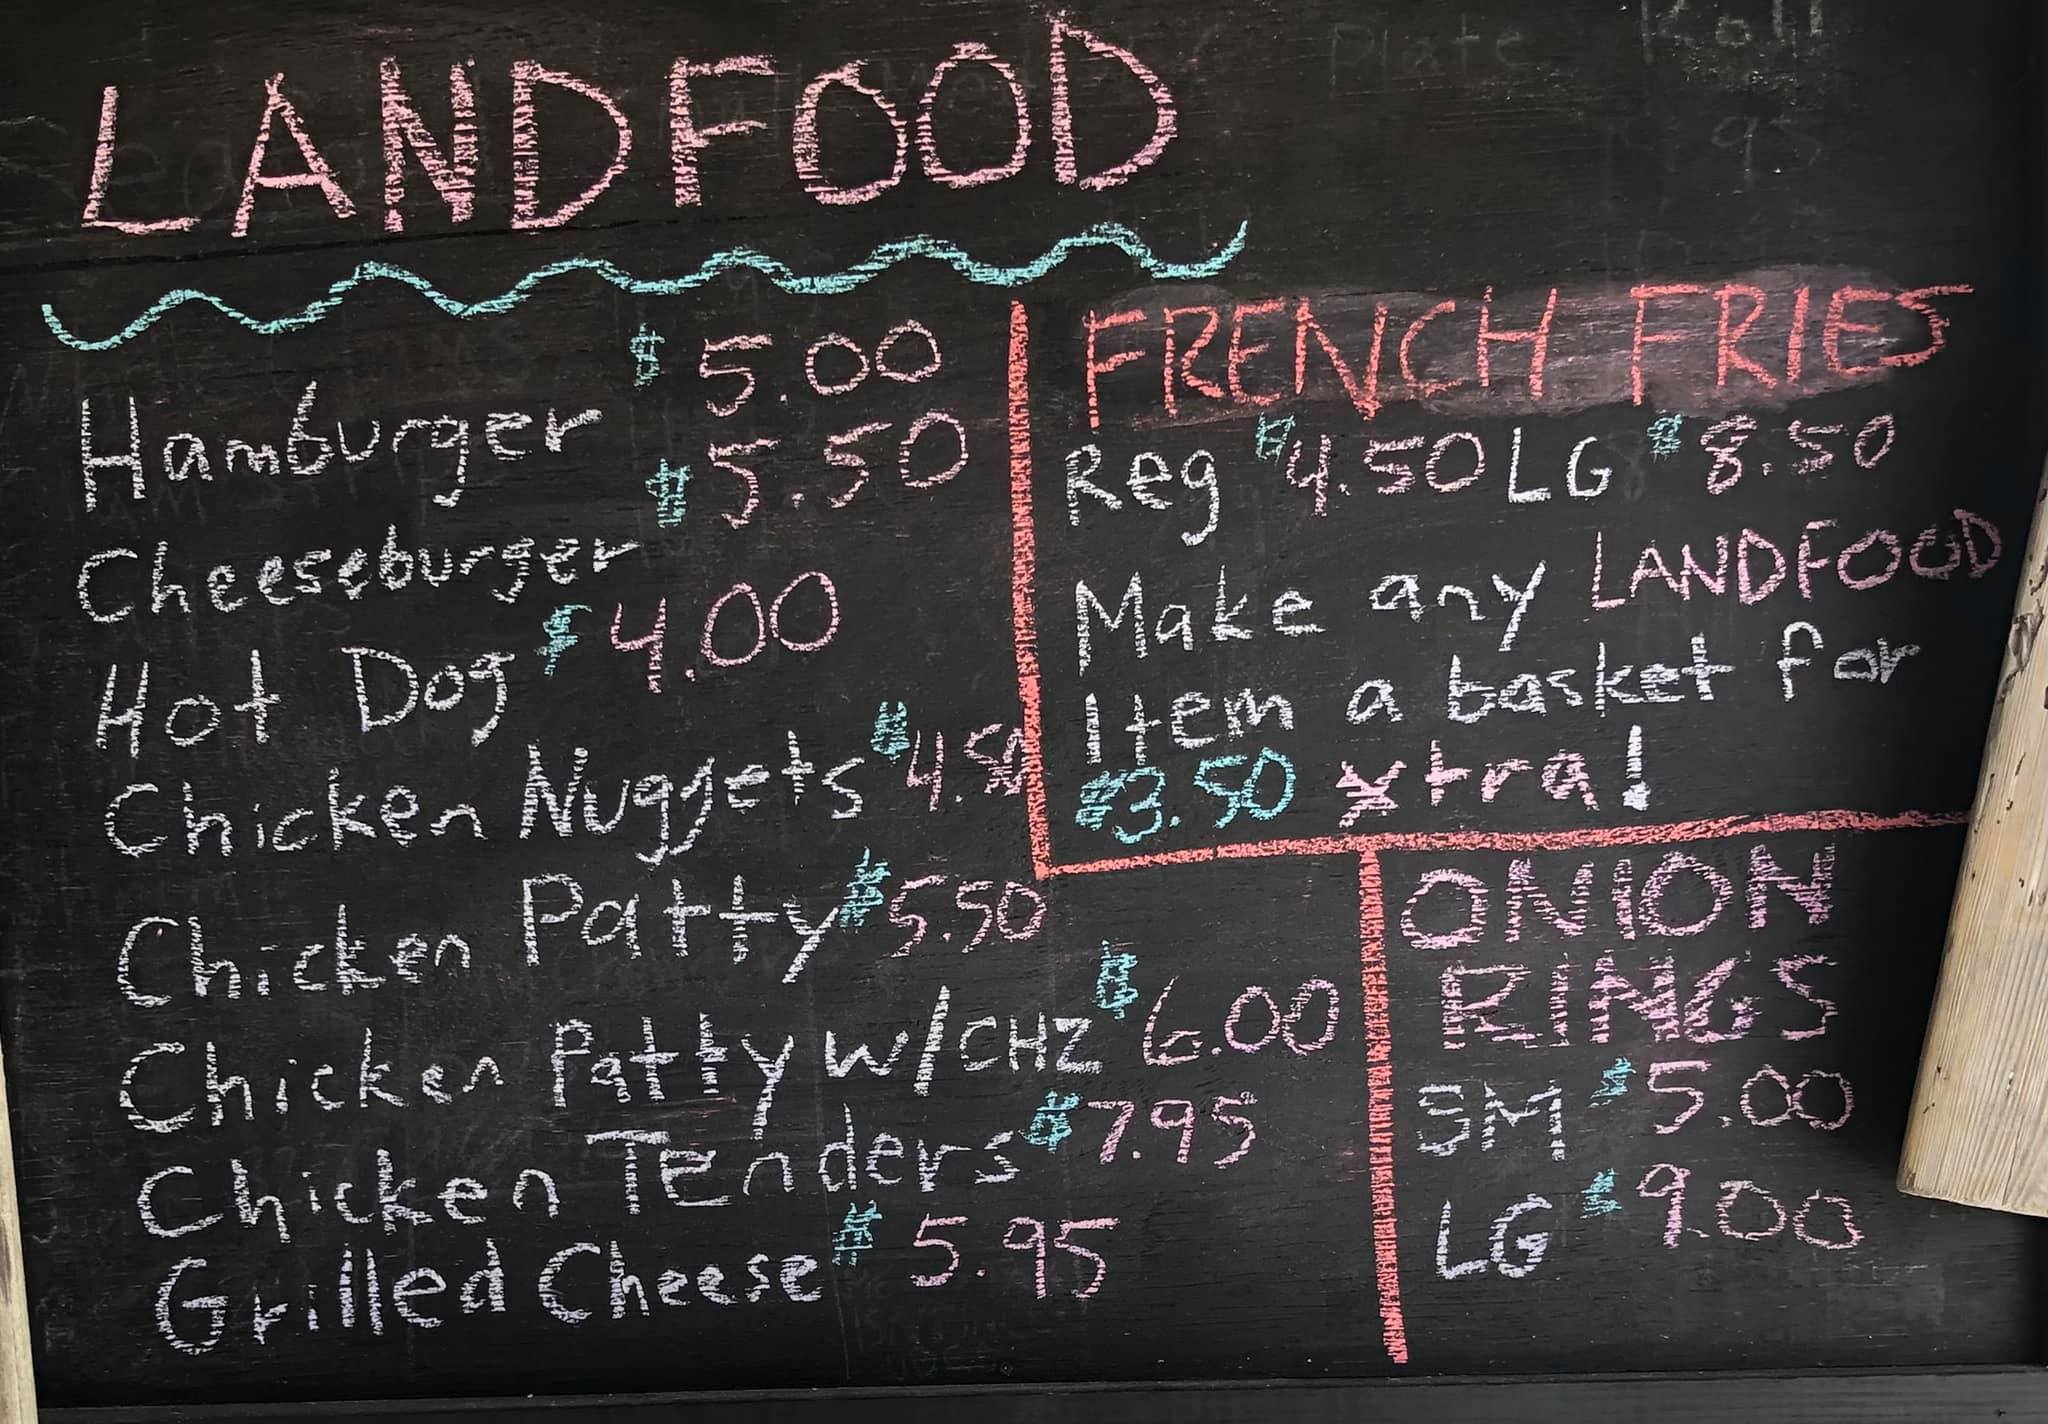 LANDFOOD
Hamburger $5.00
Cheeseburger $5.50
Hot Dog $4.00
Chicken Nuggets $4.50
Chicken Patty $5.50
Chicken Patty w/CHZ $6.00
Chicken Tenders $7.95
Grilled Cheese $5.95
FRENCH FRIES
Reg $4.50 LG $8.50
Make any LANDFOOD
Item a basket for
$3.50 xtra!
ONION
RINGS
SM $5.00
LG $9.00
Plate Roll